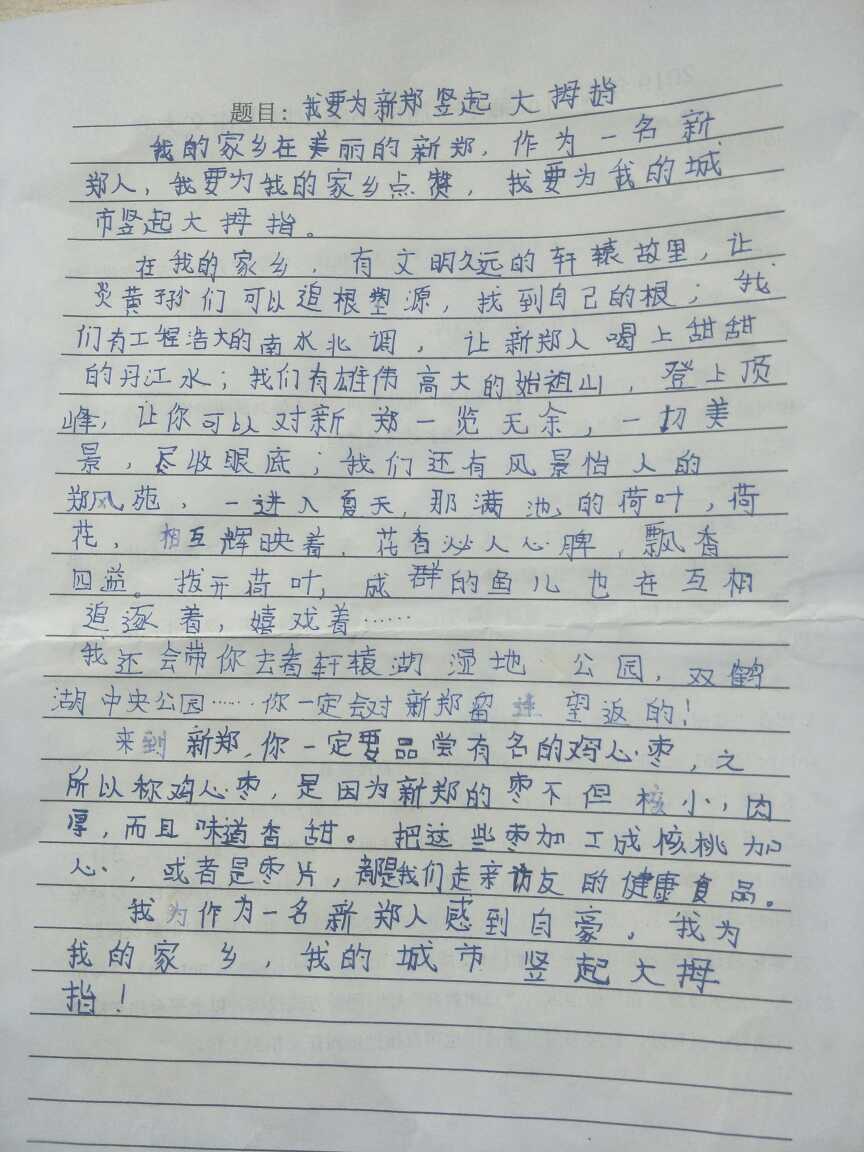 题目：我要为新郑竖起大拇指
我的家乡在美丽的新郑，作为一名新
郑人，我要为我的家乡点赞，我要为我的城
市竖起大拇指。
在我的家乡，有文明久远的轩辕故里，让
炎黄子孙们可以追根塑源，找到自己的根；我
们有工程浩大的南水北调，让新郑人喝上甜甜
的丹江水；我们有雄伟高大的始祖山，登上顶
峰，让你可以对新郑一览无余，一切美
景，尽收眼底；我们还有风景怡人的
郑风苑，一进入夏天，那满池的荷叶，荷
花，相互辉映着，花香沁人心脾，飘香
四益。拨开荷叶，成群的鱼儿也在互相
追逐着，嬉戏着……
我还会带你去看轩辕湖湿地公园，双鹤
湖中央公园……你一定会对新郑留连望返的！
来到新郑，你一定要品尝有名的鸡心枣，之
所以称鸡心枣，是因为新郑的枣不但核小，肉
厚，而且味道香甜。把这些枣加工成核桃加
心，或者是枣片，都是我们走亲访友的健康食品。
我为作为一名新郑人感到自豪，我为
我的家乡，我的城市竖起大拇
指！